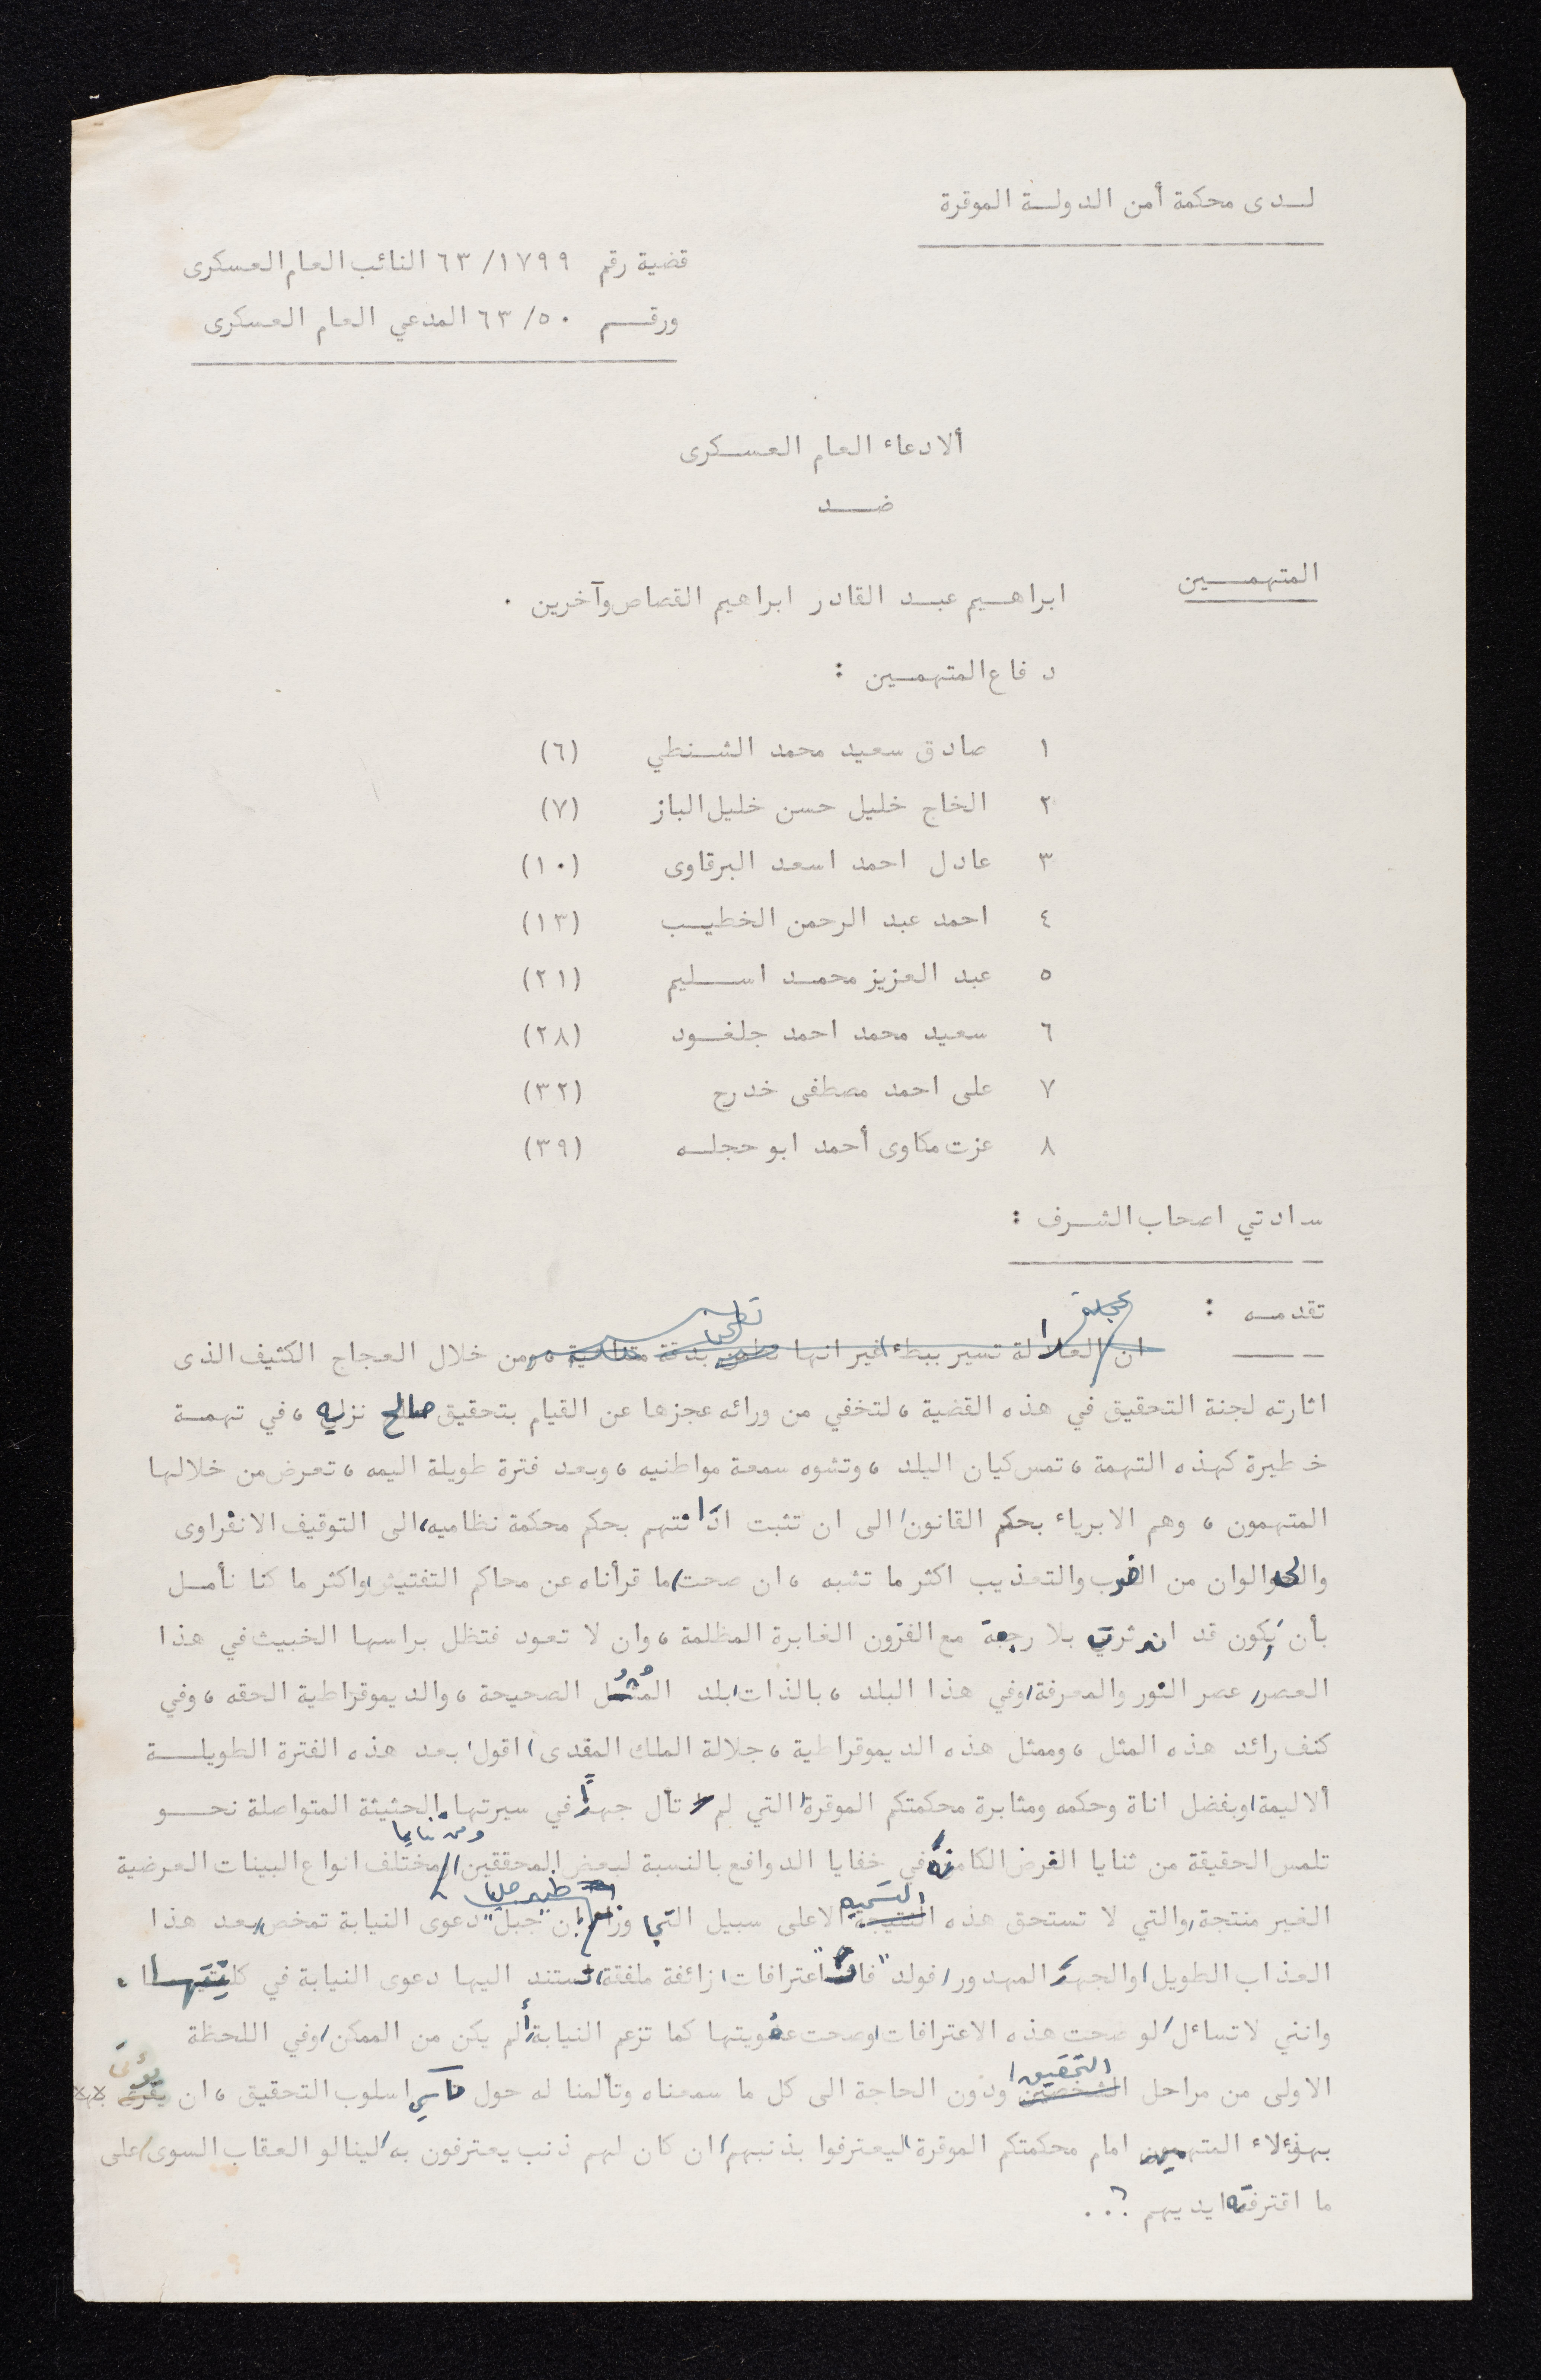 لدى محكمة أمن الدولة الموقرة
قضية رقم ١٧٩٩/٦٣ النائب العام العسكرى
ورقم ٥٠/٦٣ المدعي العام العسكرى
ألادعاء العام العسكرى
ضد
المتهمين
ابراهيم عبد القادر ابراهيم القصاص وآخرين .
دفاع المتهمين :
١ صادق سعيد محمد الشنطي (٦)
٢ الخاج خليل حسن خليل الباز (٧)
٣ عادل احمد اسعد البرقاوى (١٠)
٤ احمد عبد الرحمن الخطيب (١٣)
٥ عبد العزيز محمد اسليم (٢١)
٦ سعيد محمد احمد جلغود (٢٨)
٧ على احمد مصطفى خدرج (٣٢)
٨ عزت مكاوى أحمد ابو حجله (٣٩)
سادتي اصحاب الشرف :
تقدمه :
ان العدالة تسير ببطء غير انها تطحن بدقة من خلال العجاج الكثيف الذى
اثارته لجنة التحقيق في هذه القضية ، لتخفي من ورائه عجزها عن القيام بتحقيق صالح نزيه ، في تهمة
خطيرة كهذه التهمة ، تمس كيان البلد ، وتشوه سمعة مواطنيه ، وبعد فترة طويلة اليمه ، تعرض من خلالها
المتهمون ، وهم الابرياء بحكم القانون الى ان تثبت ادانتهم بحكم محكمة نظاميه، الى التوقيف الانفراوى
والى الوان من الضرب والتعذيب اكثر ما تشبه ، ان صحت ما قرأناه عن محاكم التفتيش، واكثر ما كنا نأمل
بأن يكون قد اندثرت بلا رجعة مع القرون الغابرة المظلمة ، وان لا تعود فتظل براسها الخبيث في هذا
العصر، عصر النور والمعرفة، وفي هذا البلد ، بالذات، بلد المُثُل الصحيحة ، والديموقراطية الحقه ، وفي
كنف رائد هذه المثل ، وممثل هذه الديموقراطية ، جلالة الملك المفدى، اقول، بعد هذه الفترة الطويلة
ألاليمة، وبفضل اناة وحكمه ومثابرة محكمتكم الموقرة، التي لم تأل جهداً في سيرتها الحثيثة المتواصلة نحو
تلمس الحقيقة من ثنايا الغرض الكامنة في خفايا الدوافع بالنسبة لبعض المحققين، ومن ثنايا مختلف انواع البينات العرضية
الغير منتجة، والتي لا تستحق هذه التسمية الا على سبيل التجاوز، ان جبل" دعوى النيابة تمخض، بعد هذا
العذاب الطويل، والجهد المهدور، فولد "فأراً" اعترافات، زائفة ملفقة، تستند اليها دعوى النيابة في كليتها .
وانني لاتسائل، لو صحت هذه الاعترافات، وصحت عفويتها كما تزعم النيابة، ألم يكن من الممكن، وفي اللحظة
الاولى من مراحل التحقيق، ودون الحاجة الى كل ما سمعناه وتألمنا له حول مآسي اسلوب التحقيق ، ان يؤتى
بهؤلاء المتهمين امام محكمتكم الموقرة، ليعترفوا بذنبهم، ان كان لهم ذنب يعترفون به، لينالو العقاب السوى، على
ما اقترفته ايديهم ؟..